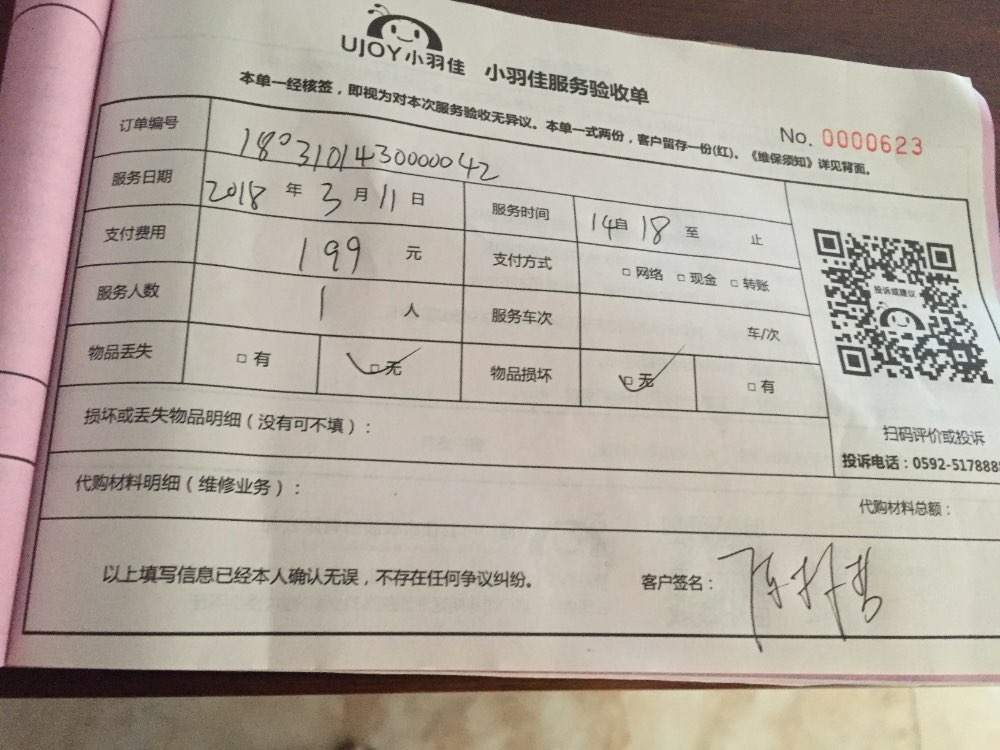 UJOY小羽佳 小羽佳服务验收单
本单一经核签，即视为对本次服务验收无异议。本单一式两份，客户留存一份(红)。《维保须知》详见背面。
No. 0000623
订单编号 1803101430000042
服务日期 2018 年 3 月 11 日 服务时间 14自 18 至 止
支付费用 199 元 支付方式 □ 网络 □ 现金 □ 转账
服务人数 1 人 服务车次 车/次
物品丢失 □ 有 □ 无 物品损坏 □ 无 □ 有
投诉或建议
损坏或丢失物品明细（没有可不填）：
扫码评价或投诉
投诉电话：0592-517888
代购材料明细（维修业务）：
代购材料总额：
以上填写信息已经本人确认无误，不存在任何争议纠纷。 客户签名：